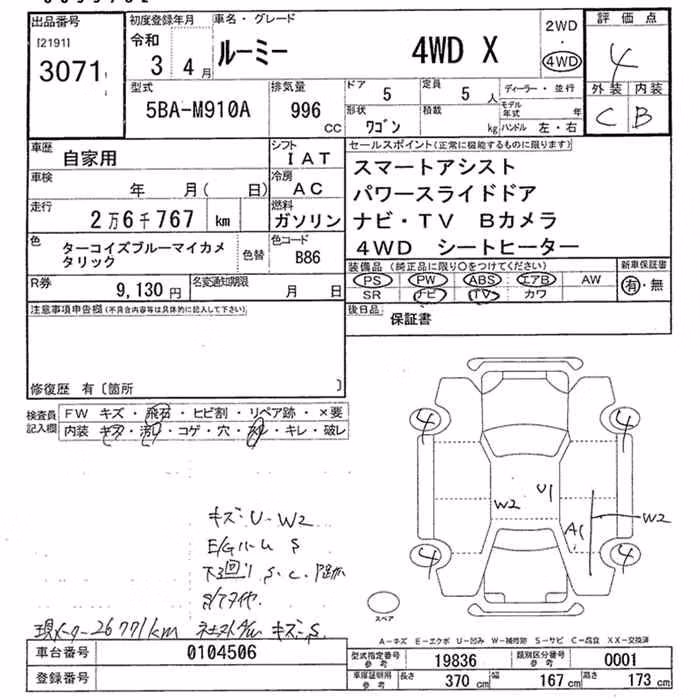 出品番号
[2191]
3071
初度登録年月
令和
3 4月
車名・グレード
ルーミー 4WD X
2WD
・
4WD
評価点
4
外装 内装
C B
型式
5BA-M910A
排気量
996
CC
ドア
5
定員
5 人
形状
ワゴン
積載
kg
ディーラー・並行
モデル年式 年
ハンドル 左・右
車歴
自家用
シフト
IAT
車検
年 月( 日)
冷房
AC
走行
2万6千767 km
燃料
ガソリン
色
ターコイズブルーマイカメ
タリック
色替
色コード
B86
R券
9,130 円
名変通知期限
月 日
セールスポイント(正常に機能するものに限ります)
スマートアシスト
パワースライドドア
ナビ・TV Bカメラ
4WD シートヒーター
装備品(純正品に限り○をつけてください)
新車保証書
PS PW ABS エアB AW
SR ナビ TV カワ
有・無
後日品
保証書
注意事項申告欄(不具合内容等は具体的に記入して下さい)
修復歴 有〔箇所 〕
検査員
記入欄
FW キズ・飛石・ヒビ割・リペア跡・×要
内装 キズ・汚れ・コゲ・穴・ ・キレ・破レ
4 4
U1
W2
A1
W2
4 4
キズ・U・W2
E/Gルーム S
下回り S・C
現メーター26771km キズ・S
スペア
A－キズ E－エクボ U－凹み W－補修跡 S－サビ C－腐食 XX－交換済
車台番号
0104506
登録番号
型式指定番号
参考
19836
類別区分番号
参考
0001
車庫証明用
参考
長さ
370 cm
幅
167 cm
高さ
173 cm